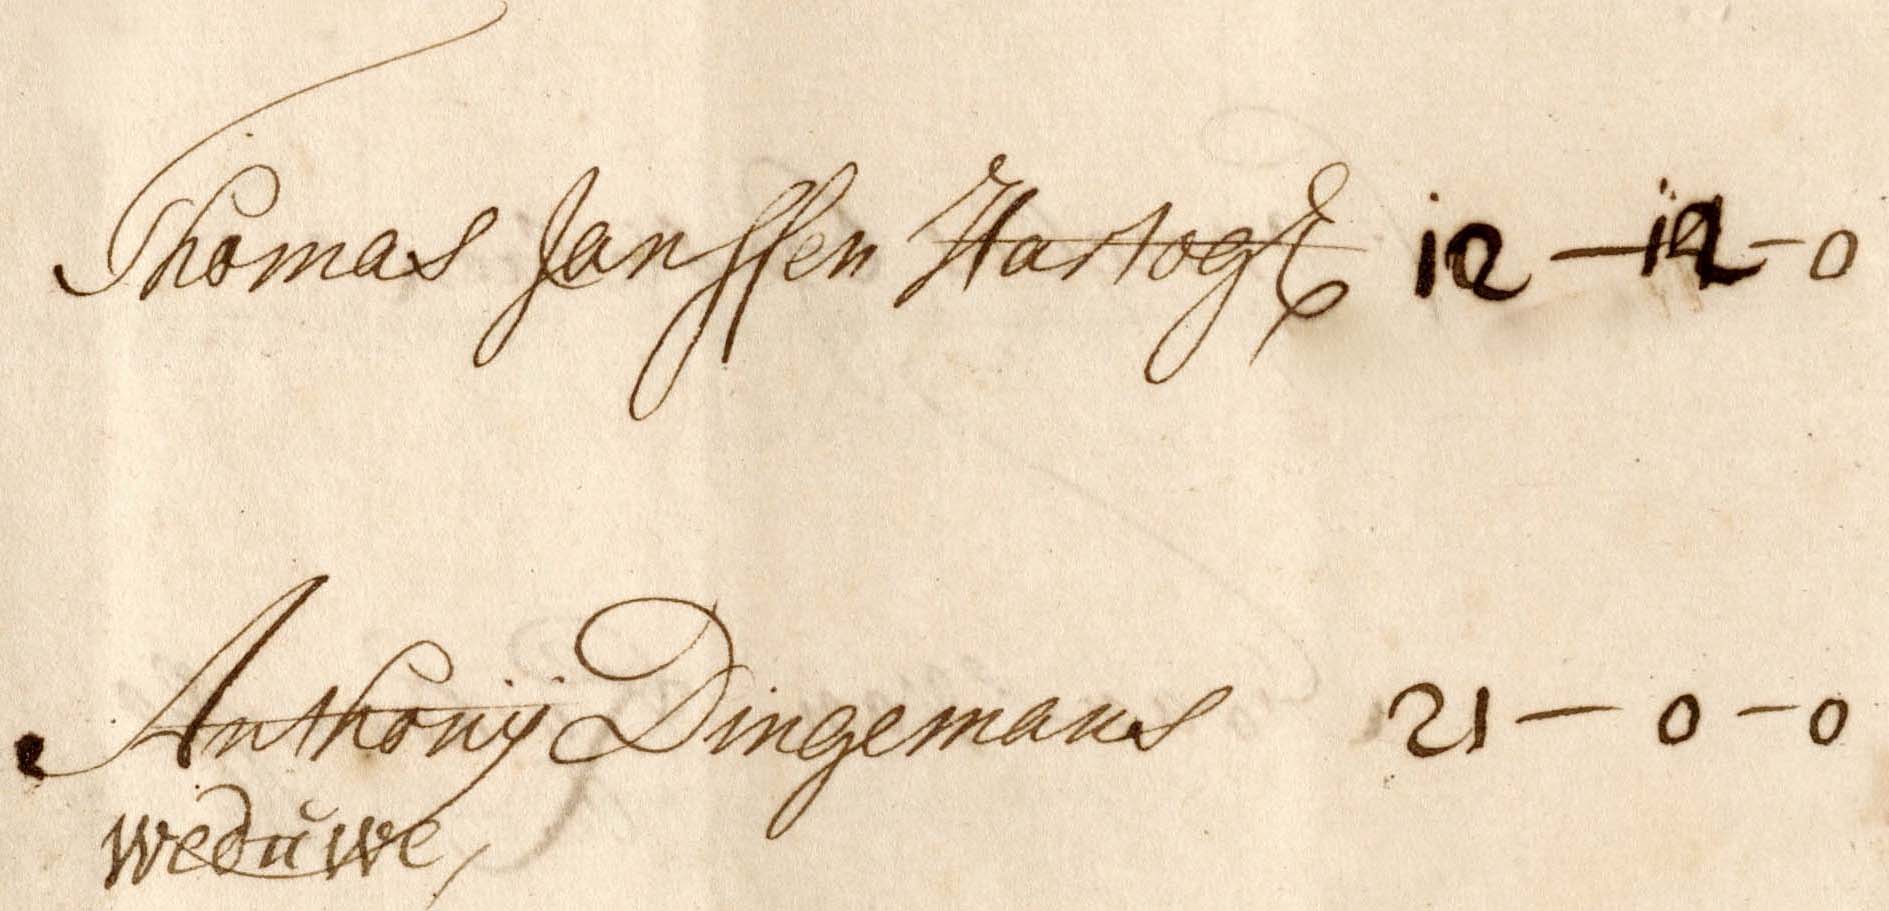 Thomas Janssen Hartogh 12 - 12 - 0
Anthonij Dingemans 21 - 0 - 0
weduwe,